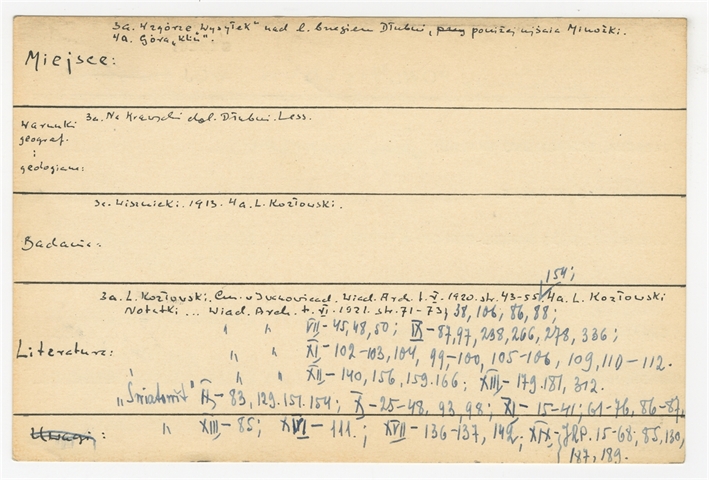 3a. Wzgórze „Wysyłek" nad l. brzegiem Dłubni, poniżej ujścia Minożki.
4a. Góra „Klin".
Miejsce:
3a. Na Krawędzi dol. Dłubni. Less.
Warunki
geograf.
i
geologiczne:
3a. Wiśnicki. 1913. 4a. L. Kozłowski.
Badania:
154;
3a. L. Kozłowski. Cm. w Iwanowicach. Wiad. Arch. t. V. 1920. str. 43-55. 4a. L. Kozłowski
Notatki ... Wiad. Arch. t. VI. 1921. str. 71-73; 38, 106, 86, 88;
" " VII - 45, 48, 50; IX - 87, 97, 238, 266, 278, 336;
Literatura: " " XI - 102-103, 104, 99-100, 105-106, 109, 110-112.
" " XII - 140, 156, 159. 166; XIII - 179. 181, 312.
„Światowit" IX - 83, 129. 151. 154; X - 25-48, 93, 98; XI - 15-41; 61-76, 86-87,
Uwagi: " XIII - 85; XVI - 111.; XVII - 136-137, 142; XIX - JRP. 15-68; 85, 130,
187, 189.